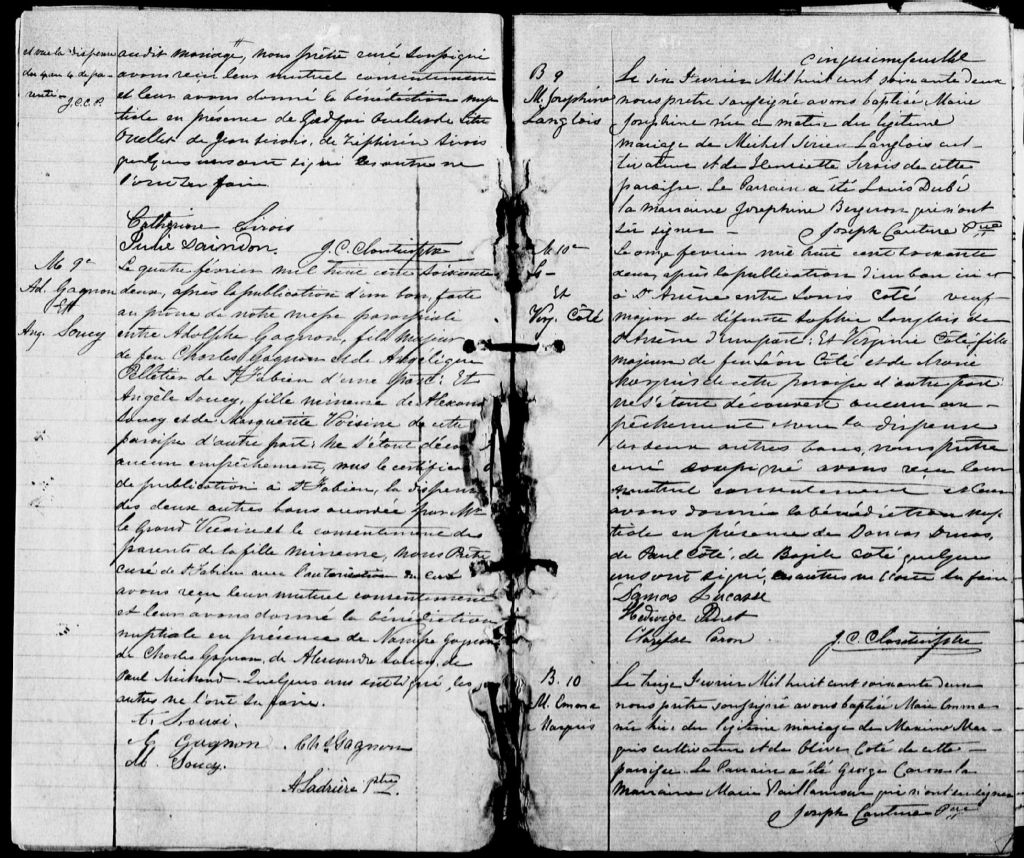 et vu la dispense
du 4 au 4 de pa-
renté -
J.C.C. P.
audit mariage, nous prêtre curé soussigné
avons reçu leur mutuel consentement
et leur avons donné la bénédiction nup
tiale en présence de
Ouellet de Jean Sirois, de Zéphirin Sirois
quelques uns ont signé les autres ne
l'ont su faire
Catherine Sirois
Julie Saindon. J. C. Cloutier, ptre
M 9e
Ad. Gagnon
Et
Ang. Soucy
Le quatre février mil huit cent soixante
deux, après la publication d'un ban, faite
au prone de notre messe paroissiale
entre Adolphe Gagnon, fils majeur
de feu Charles Gagnon et de Angélique
Pelletier de St Fabien d'une part: Et
Angèle Soucy, fille mineure de Alexand
Soucy et de Marguerite Voisine de cette
paroisse d'autre part: ne s'étant décou
aucun empêchement, vus le certificat
de publication à St Fabien, la dispense
des deux autres bans accordée par Mr
le Grand Vicaire et le consentement des
parents de la fille mineure, nous Prêtre
curé de St Fabien avec l'autorisation du curé
avons reçu leur mutuel consentement
et leurs avons donné la bénédiction
nuptiale en présence de Narcisse Gagnon
de Charles Gagnon, de Alexandre Soucy, de
Paul Michaud. Quelques uns ont signé, les
autres ne l'ont su faire.
A. Souci.
G. Gagnon . Chs Gagnon
M. Soucy.
A Ladrière ptre
cinquième feuillet
B 9
M. Josephine
Langlois
Le six Fevrier Mil huit cent soixante deux
nous prêtre soussigné avons baptisé Marie
Josephine née ce matin du légitime
mariage de Michel Sirien Langlois cul-
tivateur et de Henriette Sirois de cette
paroisse. Le Parrain a été Louis Dubé
la marraine Josephine Bergeron qui n'ont
su signer - Joseph Couture Ptre
M 10e
L-
Et
Virg. Côté
Le onze fevrier mil huit cent soixante
deux, après la publication d'un ban ici et
à St Arsène entre Louis Côté veuf
majeur de défunte Sophie Langlais de
St Arsène d'une part: Et Virginie Côté fille
majeure de feu Léon Côté et de Marie
Marquis de cette paroisse d'autre part
ne s'étant découvert aucun em-
pêchement et vu la dispense
des deux autres bans, nous prêtre
curé soussigné avons reçu leur
mutuel consentement et leur
avons donné la bénédiction nup
tiale en présence de Damas
de Paul Côté, de Bazile Côté quelques
uns ont signé, les autres ne l'ont su faire
Damas Lacasse
Hedwige
Clarisse Caron
J. C. Cloutier, ptre
B. 10
M. Emma
Marquis
Le treize Fevrier Mil huit cent soixante deux
nous prêtre soussigné avons baptisé Marie Emma
née hier du légitime mariage de Maxime Mar-
quis cultivateur et de Olive Coté de cette
paroisse. Le Parrain a été George Caron la
Marraine Marie Vaillancour qui n'ont su signer
Joseph Couture Ptre